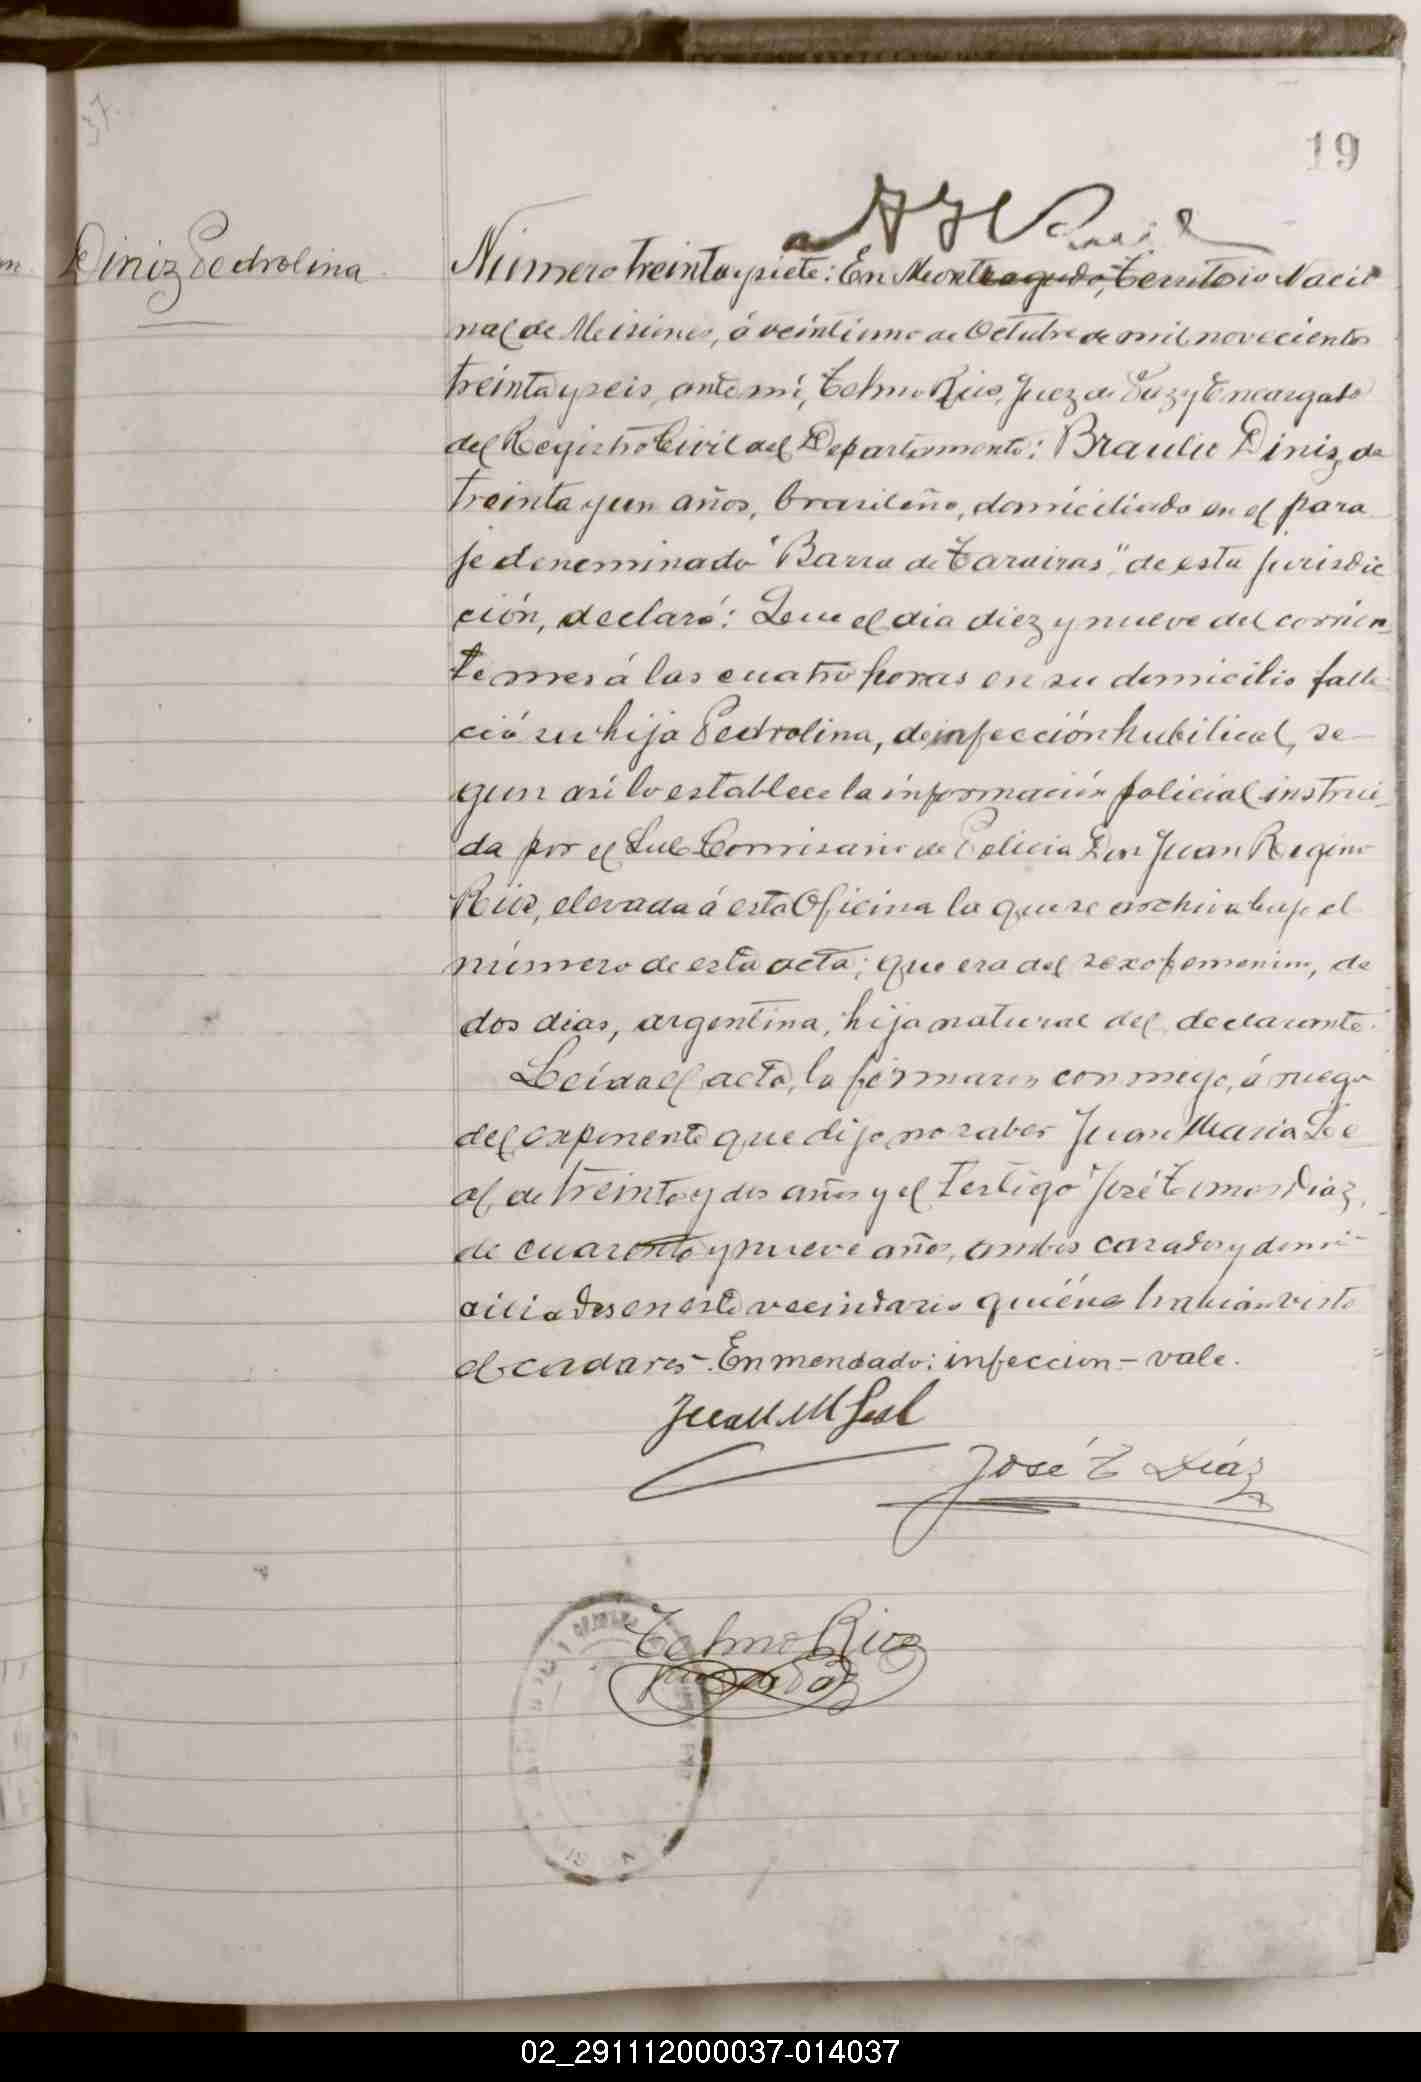 37.
19
Diniz Pedrolina
Número treinta y siete: En Monteagudo, Territorio Nacio
nal de Misiones, á veintiuno de Octubre de mil novecientos
treinta y seis, ante mí, Telmo Rios, Juez de Paz y Encargado
del Registro Civil del Departamento: Braulio Diniz, de
treinta y un años, brasileño, domiciliado en el para
je denominado "Barra de Tarairas", de esta jurisdic
ción, declaró: Que el dia diez y nueve del corrien
te mes á las cuatro horas en su domicilio falle
ció su hija Pedrolina, de infección hubilical, se-
gun así lo establece la información policial instrui-
da por el Sub Comisario de Policia Don Juan Regino
Rios, elevada á esta Oficina la que se archiva bajo el
número de esta acta; que era del sexo femenino, de
dos dias, argentina, hija natural del declarante.
Leída el acta, la firmaron conmigo, á ruego
del exponente que dijo no saber Juan Maria Le
al, de treinta y dos años y el testigo José Temos Diaz,
de cuarenta y nueve años, ambos casados y domi-
ciliados en este vecindario quiénes habian visto
el cadaver-. Enmendado: infeccion - vale.
Juan M Leal
José T Díaz
Telmo Rios
Juez de Paz
02_291112000037-014037